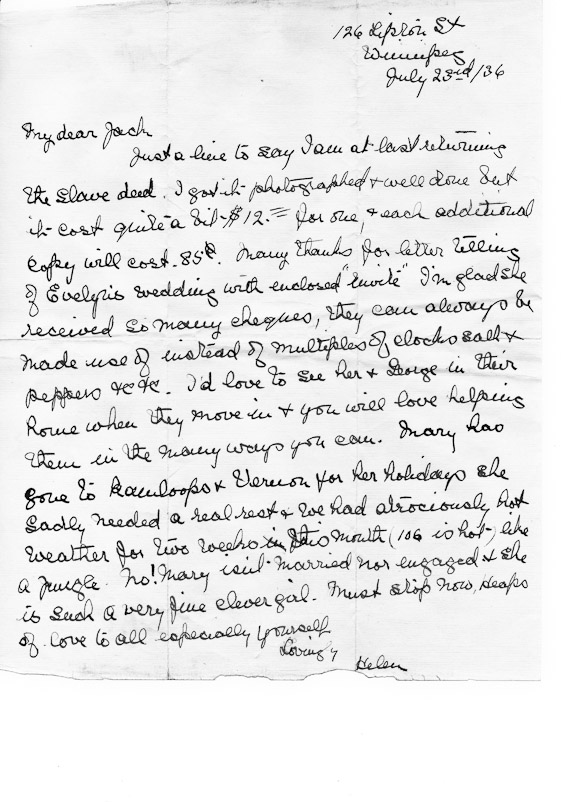 126 Lipton St
Winnipeg
July 23rd/36
My dear Jack
Just a line to say I am at last returning
the slave deed. I got it photographed & well done but
it cost quite a bit $12.= for one, & each additional
copy will cost .85¢. Many thanks for letter telling
of Evelyn's wedding with enclosed "invite" I'm glad she
received so many cheques, they can always be
made use of instead of multiples of clocks salt &
peppers &c &c. I'd love to see her & George in their
home when they move in & you will love helping
them in the many ways you can. Mary has
gone to Kamloops & Vernon for her holidays she
sadly needed a real rest & we had atrociously hot
weather for two weeks in this month (106 is hot) like
a jungle. No! Mary isn't married nor engaged & she
is such a very fine clever girl. Must stop now, Heaps
of love to all especially yourself
Loving y
Helen